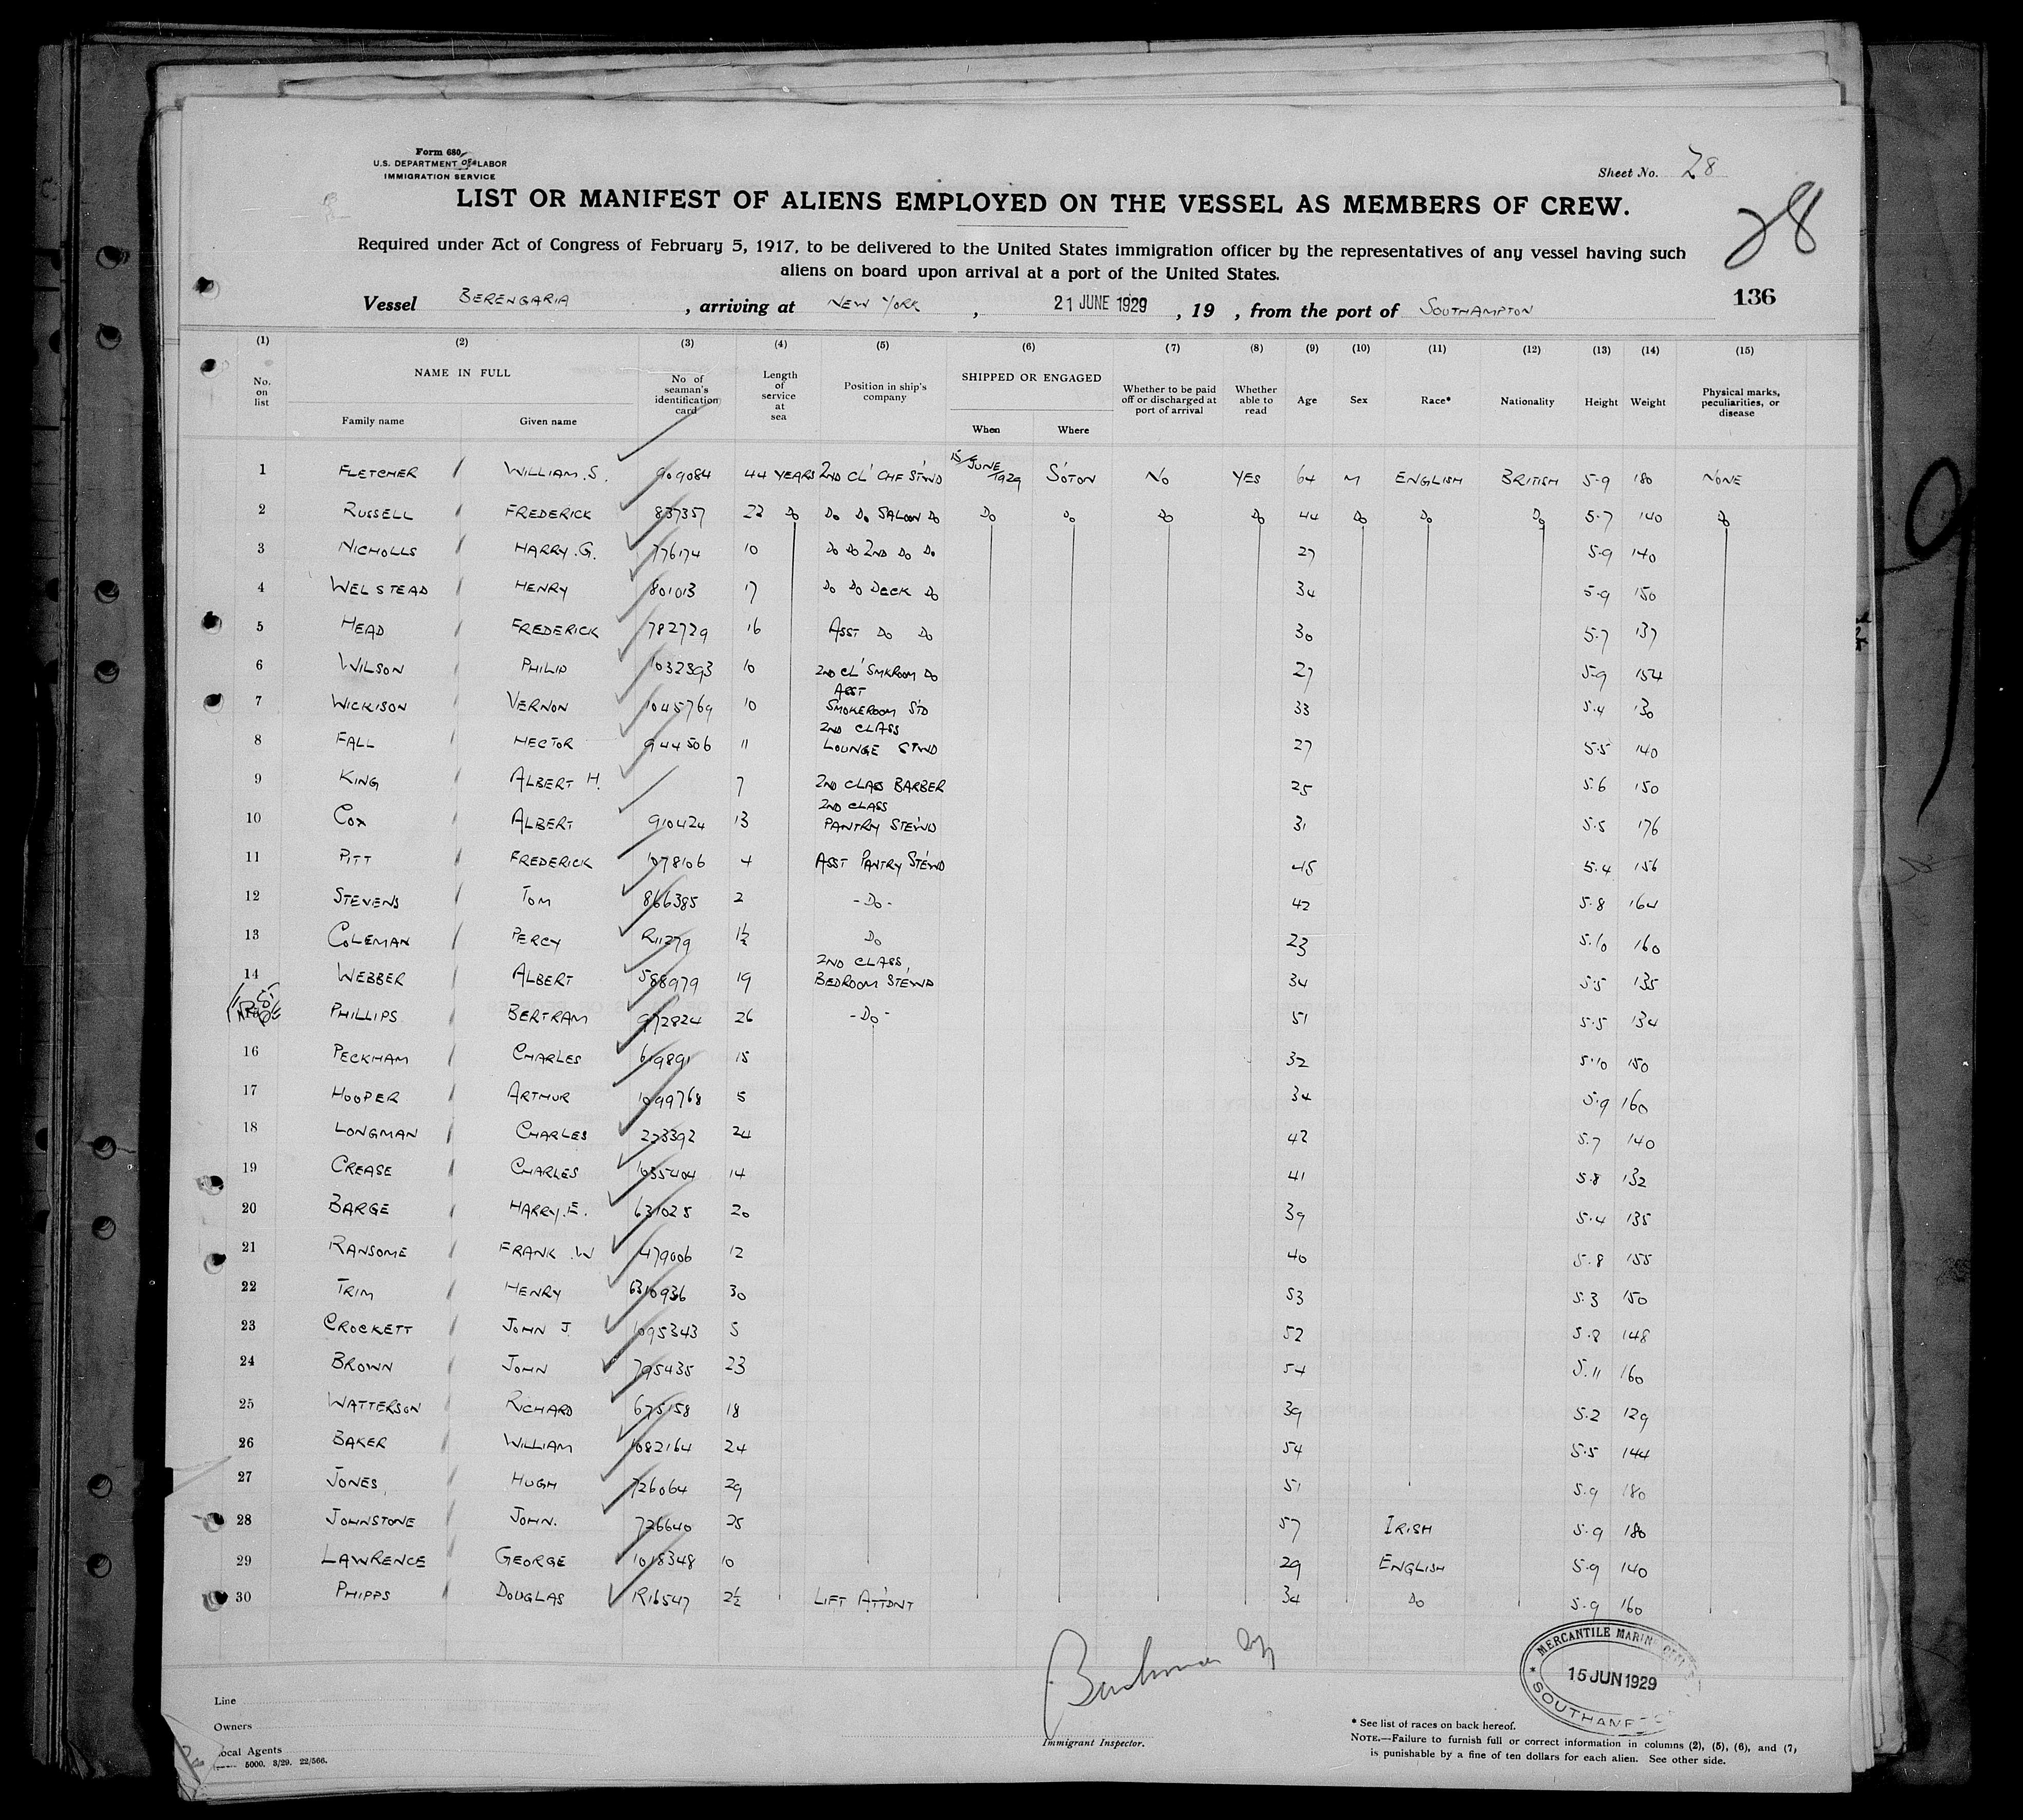 Form 680
U.S. DEPARTMENT OF LABOR
IMMIGRATION SERVICE
Sheet No. 28
LIST OR MANIFEST OF ALIENS EMPLOYED ON THE VESSEL AS MEMBERS OF CREW.
28
Required under Act of Congress of February 5, 1917, to be delivered to the United States immigration officer by the representatives of any vessel having such
aliens on board upon arrival at a port of the United States.
136
Vessel BERENGARIA , arriving at NEW YORK , 21 JUNE 1929 , 19 , from the port of SOUTHAMPTON
(1) (2) (3) (4) (5) (6) (7) (8) (9) (10) (11) (12) (13) (14) (15)
No. on list NAME IN FULL Family name Given name No of seaman's identification card Length of service at sea Position in ship's company SHIPPED OR ENGAGED When Where Whether to be paid off or discharged at port of arrival Whether able to read Age Sex Race* Nationality Height Weight Physical marks, peculiarities, or disease
1 FLETCHER WILLIAM.S. 909084 44 YEARS 2ND CL' CHF ST'WD 15/JUNE/1929 S'OTON NO YES 64 M ENGLISH BRITISH 5-9 180 NONE
2 RUSSELL FREDERICK 837357 22 DO DO DO SALOON DO DO DO DO DO 44 DO DO DO 5-7 140 DO
3 NICHOLLS HARRY.G. 776174 10 DO DO 2ND DO DO 27 5-9 140
4 WELSTEAD HENRY 801013 17 DO DO DECK DO 34 5-9 150
5 HEAD FREDERICK 782729 16 ASST DO DO 30 5.7 137
6 WILSON PHILIP 1032393 10 2ND CL' SMKROOM DO 27 5-9 154
7 WICKISON VERNON 1045769 10 ASST SMOKEROOM ST'D 33 5.4 130
8 FALL HECTOR 944506 11 2ND CLASS LOUNGE STWD 27 5.5 140
9 KING ALBERT H. 7 2ND CLASS BARBER 25 5.6 150
10 COX ALBERT 910424 13 2ND CLASS PANTRY STE'WD 31 5.5 176
11 PITT FREDERICK 1078106 4 ASST PANTRY STE'WD 45 5.4 156
12 STEVENS TOM 866385 2 -DO- 42 5.8 164
13 COLEMAN PERCY R11279 1½ DO 23 5.10 160
14 WEBBER ALBERT 588979 19 2ND CLASS, BEDROOM STE'WD 34 5.5 135
15 PHILLIPS BERTRAM 972824 26 -DO- 51 5.5 134
16 PECKHAM CHARLES 619891 15 32 5.10 150
17 HOOPER ARTHUR 1099768 5 34 5.9 160
18 LONGMAN CHARLES 223392 24 42 5.7 140
19 CREASE CHARLES 1035404 14 41 5.8 132
20 BARGE HARRY.E. 631025 20 39 5.4 135
21 RANSOME FRANK .W 479006 12 40 5.8 155
22 TRIM HENRY 6310936 30 53 5.3 150
23 CROCKETT JOHN J. 1095343 5 52 5.8 148
24 BROWN JOHN 795435 23 54 5.11 160
25 WATTERSON RICHARD 675158 18 39 5.2 129
26 BAKER WILLIAM 1082164 24 54 5.5 144
27 JONES HUGH 726064 29 51 5.9 180
28 JOHNSTONE JOHN. 726640 25 57 IRISH 5.9 180
29 LAWRENCE GEORGE 1018348 10 29 ENGLISH 5.9 140
30 PHIPPS DOUGLAS R16547 2½ LIFT ATT'DNT 34 DO 5.9 160
MERCANTILE MARINE OFFICE
15 JUN 1929
SOUTHAMPTON
Line
Owners
Local Agents
5000. 3/29. 22/566.
Immigrant Inspector.
* See list of races on back hereof.
NOTE.—Failure to furnish full or correct information in columns (2), (5), (6), and (7,
is punishable by a fine of ten dollars for each alien. See other side.